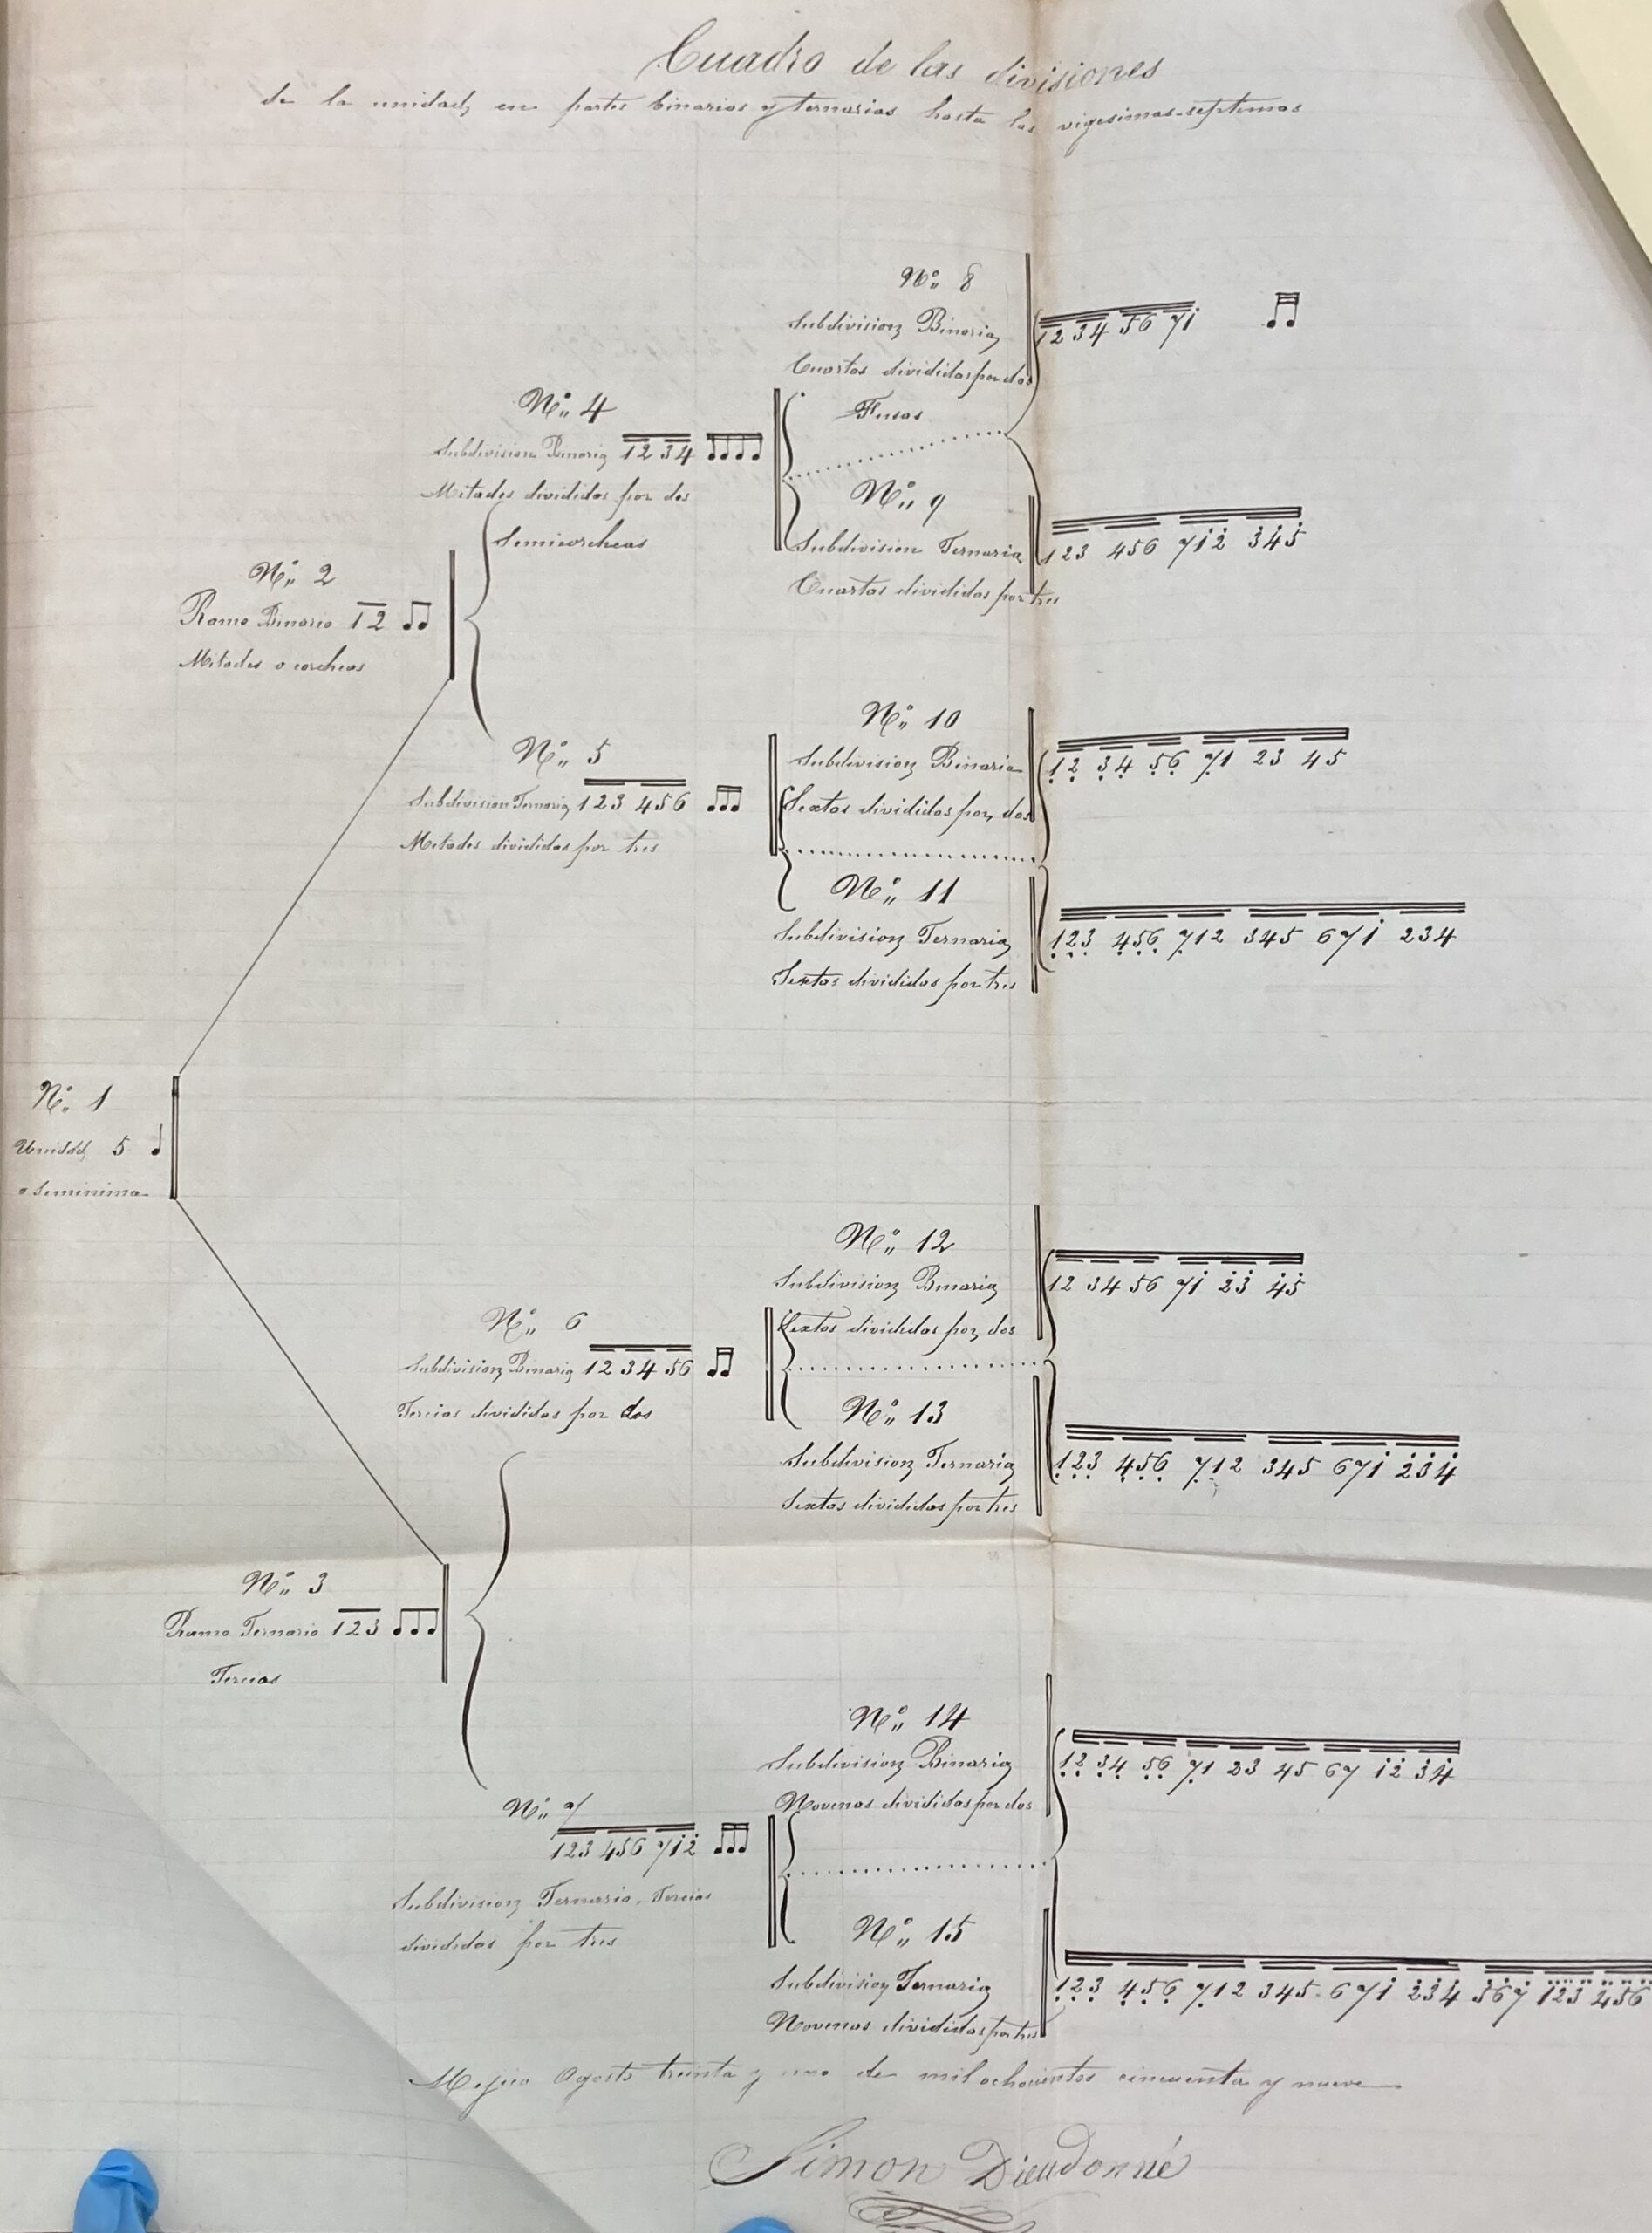 Cuadro de las divisiones
de la unidad, en partes binarias y ternarias hasta las vigesimas-septimas
N.º 8
Subdivision Binaria
Cuartos divididos por dos
Fusas
12 34 56 71̇
N.º 4
Subdivision Binaria 12 34
Mitades divididas por dos
Semicorcheas
N.º 9
Subdivision Ternaria
Cuartos divididos por tres
123 456 71̇2̇ 3̇4̇5̇
N.º 2
Ramo Binario 12
Mitades o corcheas
N.º 10
Subdivision Binaria
Sextos divididos por dos
1̣2̣ 3̣4̣ 5̣6̣ 7̣1 23 45
N.º 5
Subdivision Ternaria 123 456
Mitades divididas por tres
N.º 11
Subdivision Ternaria
Sextos divididos por tres
1̣2̣3̣ 4̣5̣6̣ 7̣12 345 671̇ 234
N.º 1
Unidad 5
o Seminima
N.º 12
Subdivision Binaria
Sextos divididos por dos
12 34 56 71̇ 2̇3̇ 4̇5̇
N.º 6
Subdivision Binaria 12 34 56
Tercias divididas por dos
N.º 13
Subdivision Ternaria
Sextos divididos por tres
1̣2̣3̣ 4̣5̣6̣ 7̣12 345 671̇ 2̇3̇4̇
N.º 3
Ramo Ternario 123
Tercias
N.º 14
Subdivision Binaria
Novenos divididos por dos
1̣2̣ 3̣4̣ 5̣6̣ 7̣1 23 45 67 1̇2̇ 3̇4̇
N.º 7
123 456 71̇2̇
Subdivision Ternaria, Tercias
divididas por tres
N.º 15
Subdivision Ternaria
Novenos divididos por tres
1̣2̣3̣ 4̣5̣6̣ 7̣12 345 671̇ 2̇3̇4̇ 5̇6̇7̇ 1̈2̈3̈ 4̈5̈6̈
Mejico Agosto treinta y uno de mil ochocientos cincuenta y nueve
Simon Dieudonné